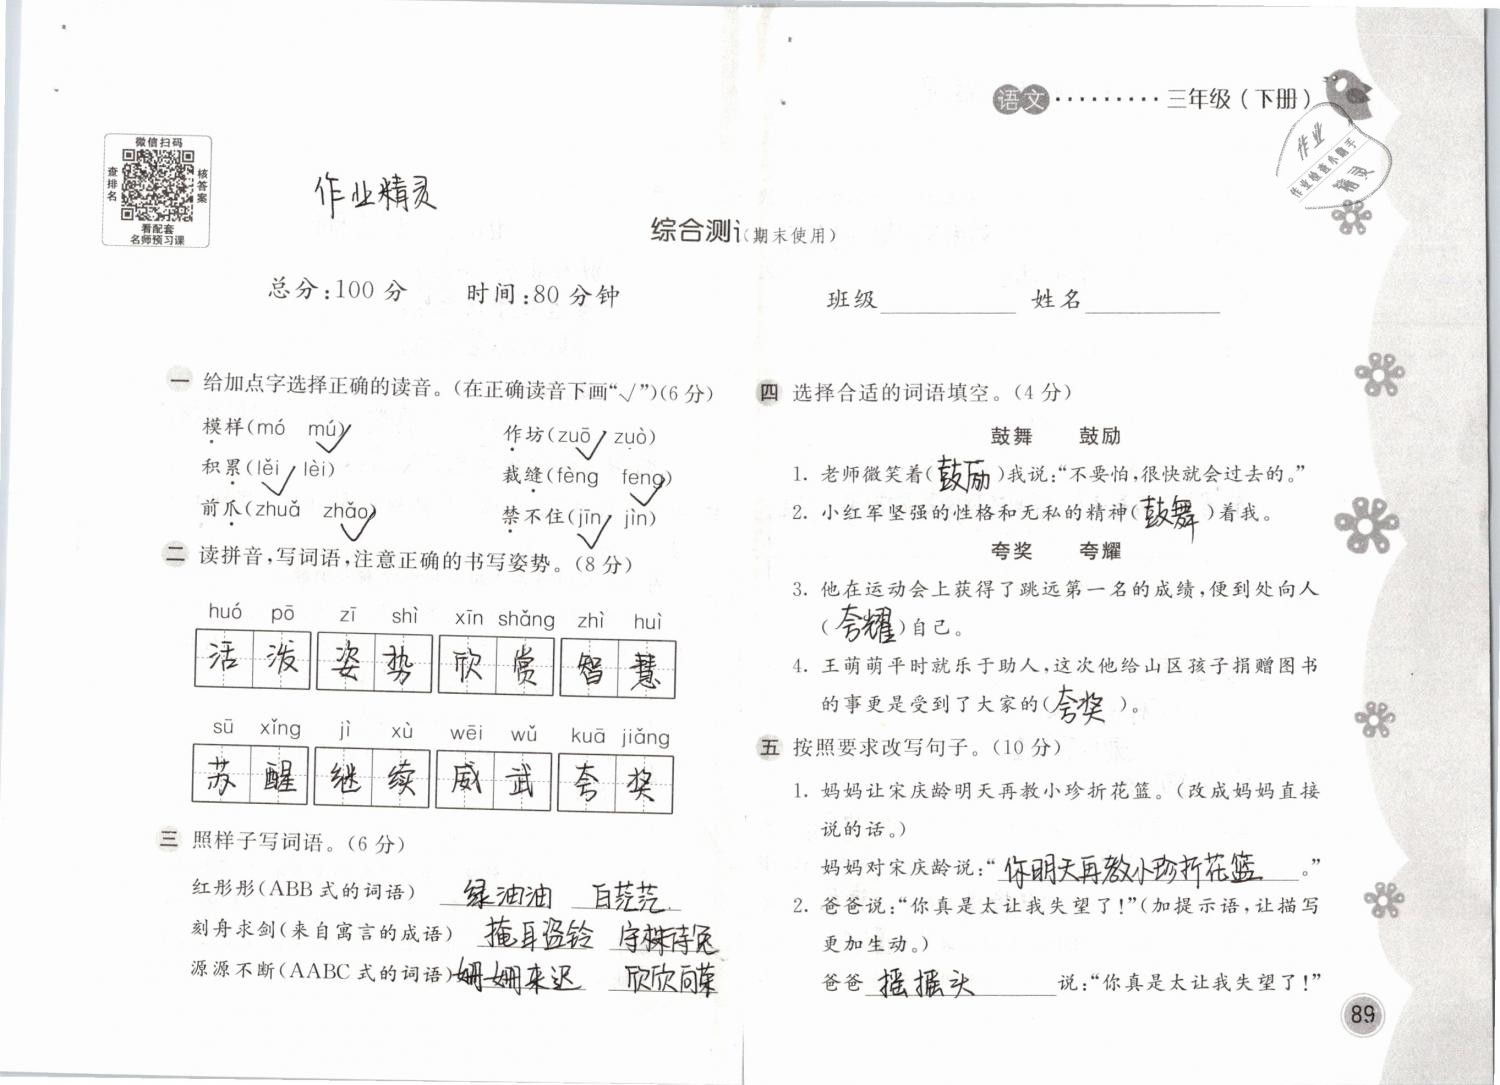 语文·········三年级(下册)
微信扫码
查排名
核答案
看配套
名师预习课
作业精灵
作业
作业检查小助手
精灵
综合测i(期末使用)
总分:100分 时间:80分钟
班级________ 姓名________
一 给加点字选择正确的读音。(在正确读音下画“√”)(6分)
模样(mó mú)√ 作坊(zuō√ zuò)
积累(lěi√ lèi) 裁缝(fèng feng)√
前爪(zhuǎ zhǎo)√ 禁不住(jīn√ jìn)
二 读拼音,写词语,注意正确的书写姿势。(8分)
huó pō zī shì xīn shǎng zhì huì
活泼 姿势 欣赏 智慧
sū xǐng jì xù wēi wǔ kuā jiǎng
苏醒 继续 威武 夸奖
三 照样子写词语。(6分)
红彤彤(ABB式的词语) 绿油油 白茫茫
刻舟求剑(来自寓言的成语) 掩耳盗铃 守株待兔
源源不断(AABC式的词语) 姗姗来迟 欣欣向荣
四 选择合适的词语填空。(4分)
鼓舞 鼓励
1. 老师微笑着(鼓励)我说:“不要怕,很快就会过去的。”
2. 小红军坚强的性格和无私的精神(鼓舞)着我。
夸奖 夸耀
3. 他在运动会上获得了跳远第一名的成绩,便到处向人
(夸耀)自己。
4. 王萌萌平时就乐于助人,这次他给山区孩子捐赠图书
的事更是受到了大家的(夸奖)。
五 按照要求改写句子。(10分)
1. 妈妈让宋庆龄明天再教小珍折花篮。(改成妈妈直接
说的话。)
妈妈对宋庆龄说:“你明天再教小珍折花篮。”
2. 爸爸说:“你真是太让我失望了!”(加提示语,让描写
更加生动。)
爸爸摇摇头说:“你真是太让我失望了!”
89